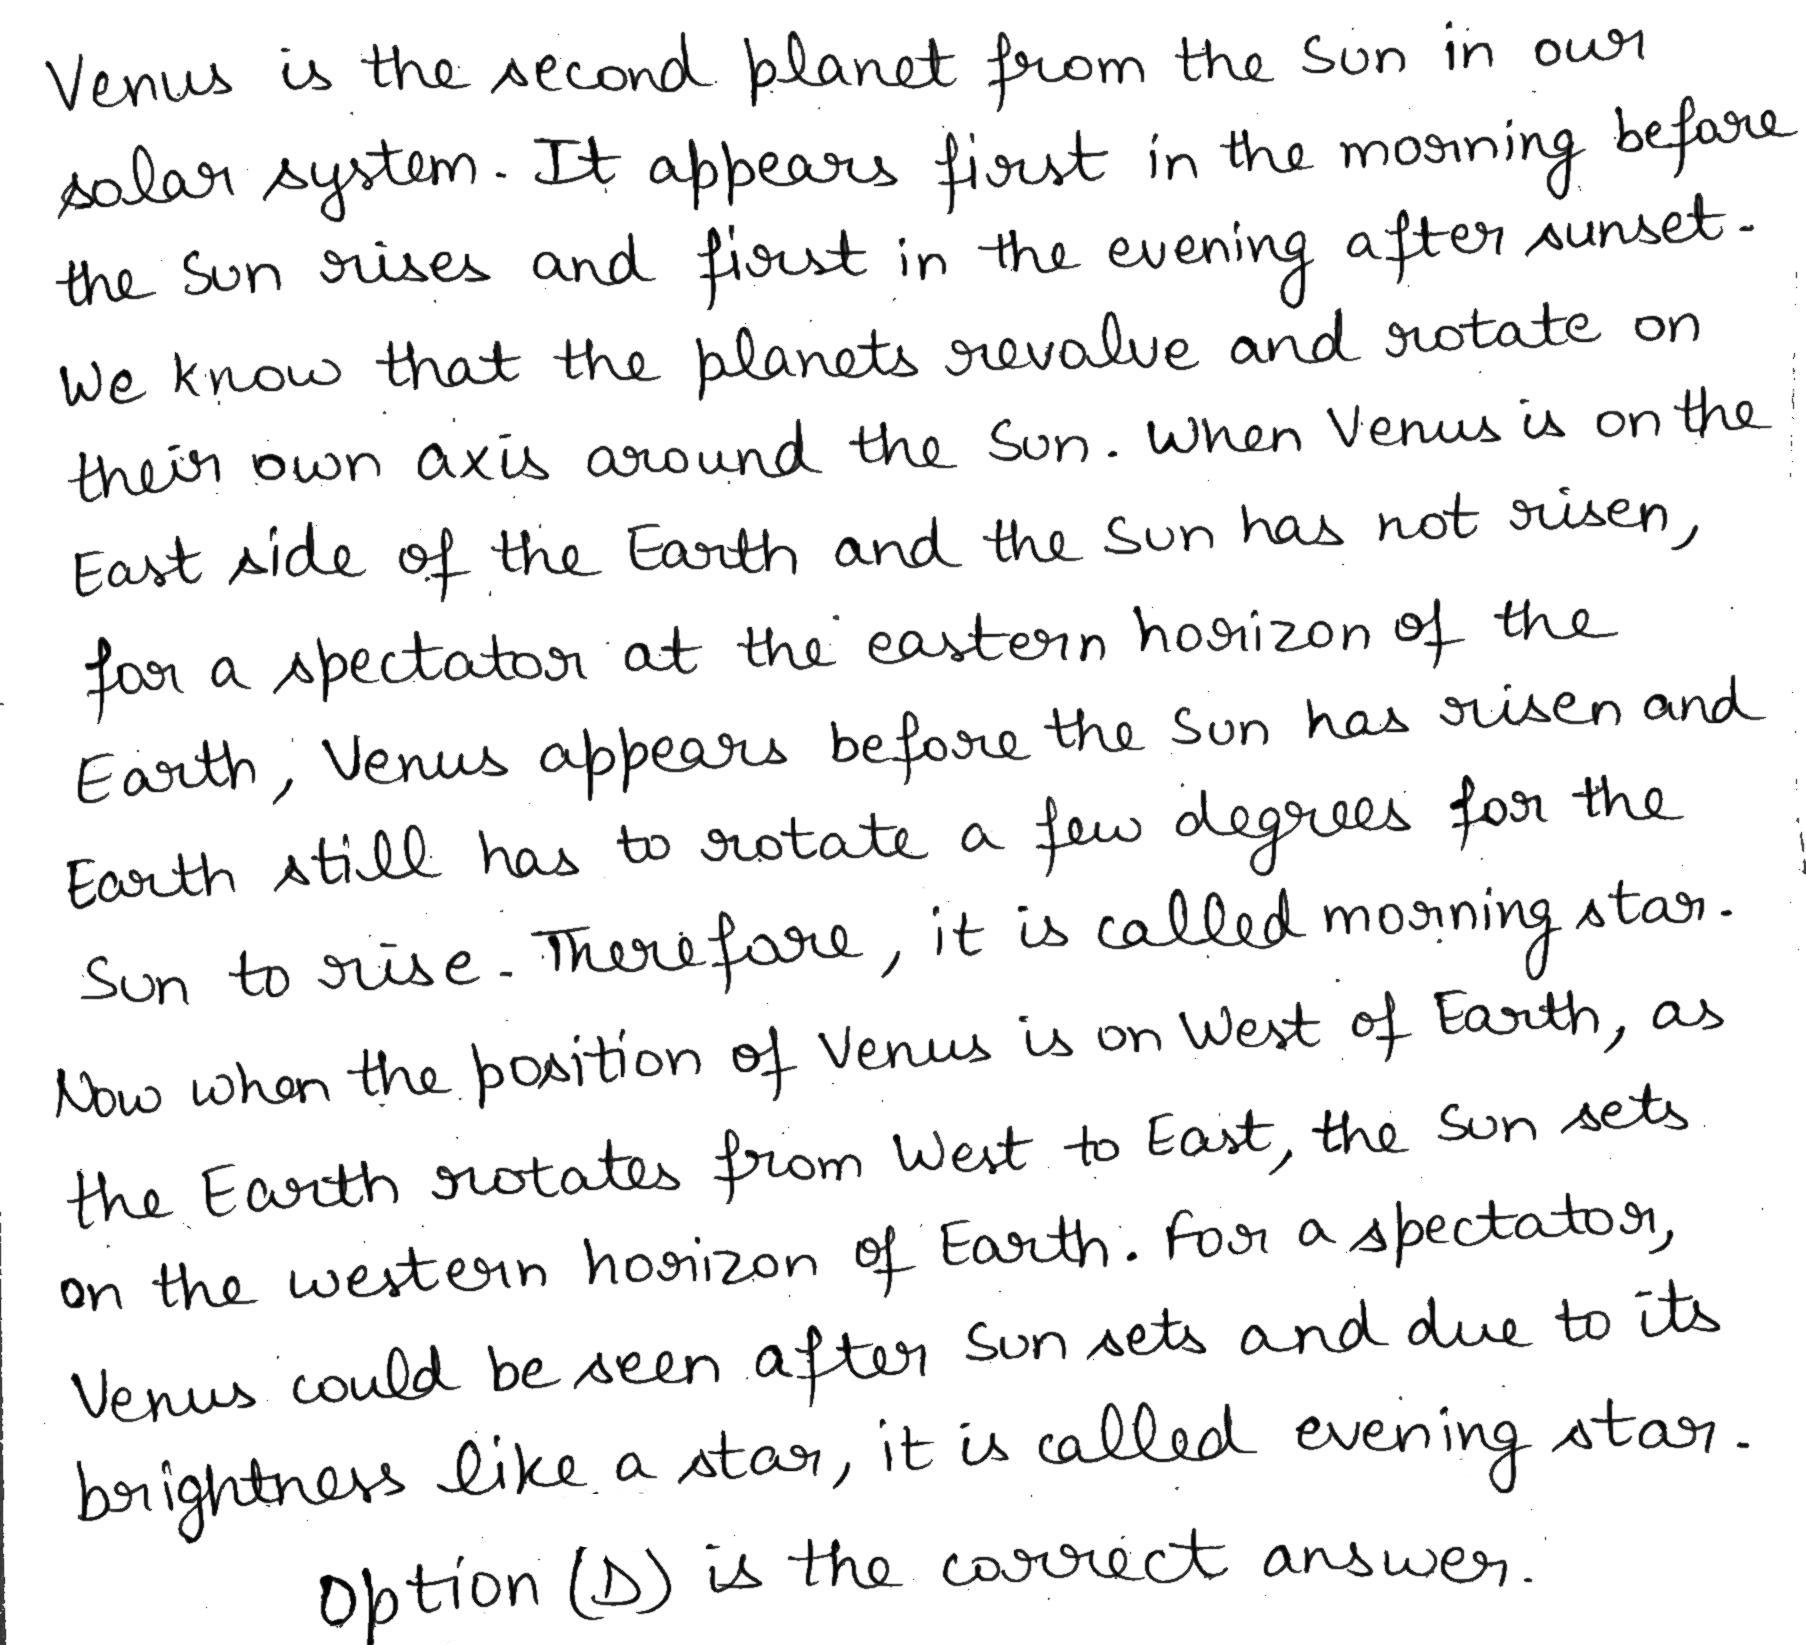 Venus is the second planet from the Sun in our
solar system. It appears first in the morning before
the Sun rises and first in the evening after sunset.
We know that the planets revolve and rotate on
their own axis around the Sun. When Venus is on the
East side of the Earth and the Sun has not risen,
for a spectator at the eastern horizon of the
Earth, Venus appears before the Sun has risen and
Earth still has to rotate a few degrees for the
Sun to rise. Therefore, it is called morning star.
Now when the position of Venus is on West of Earth, as
the Earth rotates from West to East, the Sun sets
on the western horizon of Earth. For a spectator,
Venus could be seen after Sun sets and due to its
brightness like a star, it is called evening star.
Option (D) is the correct answer.